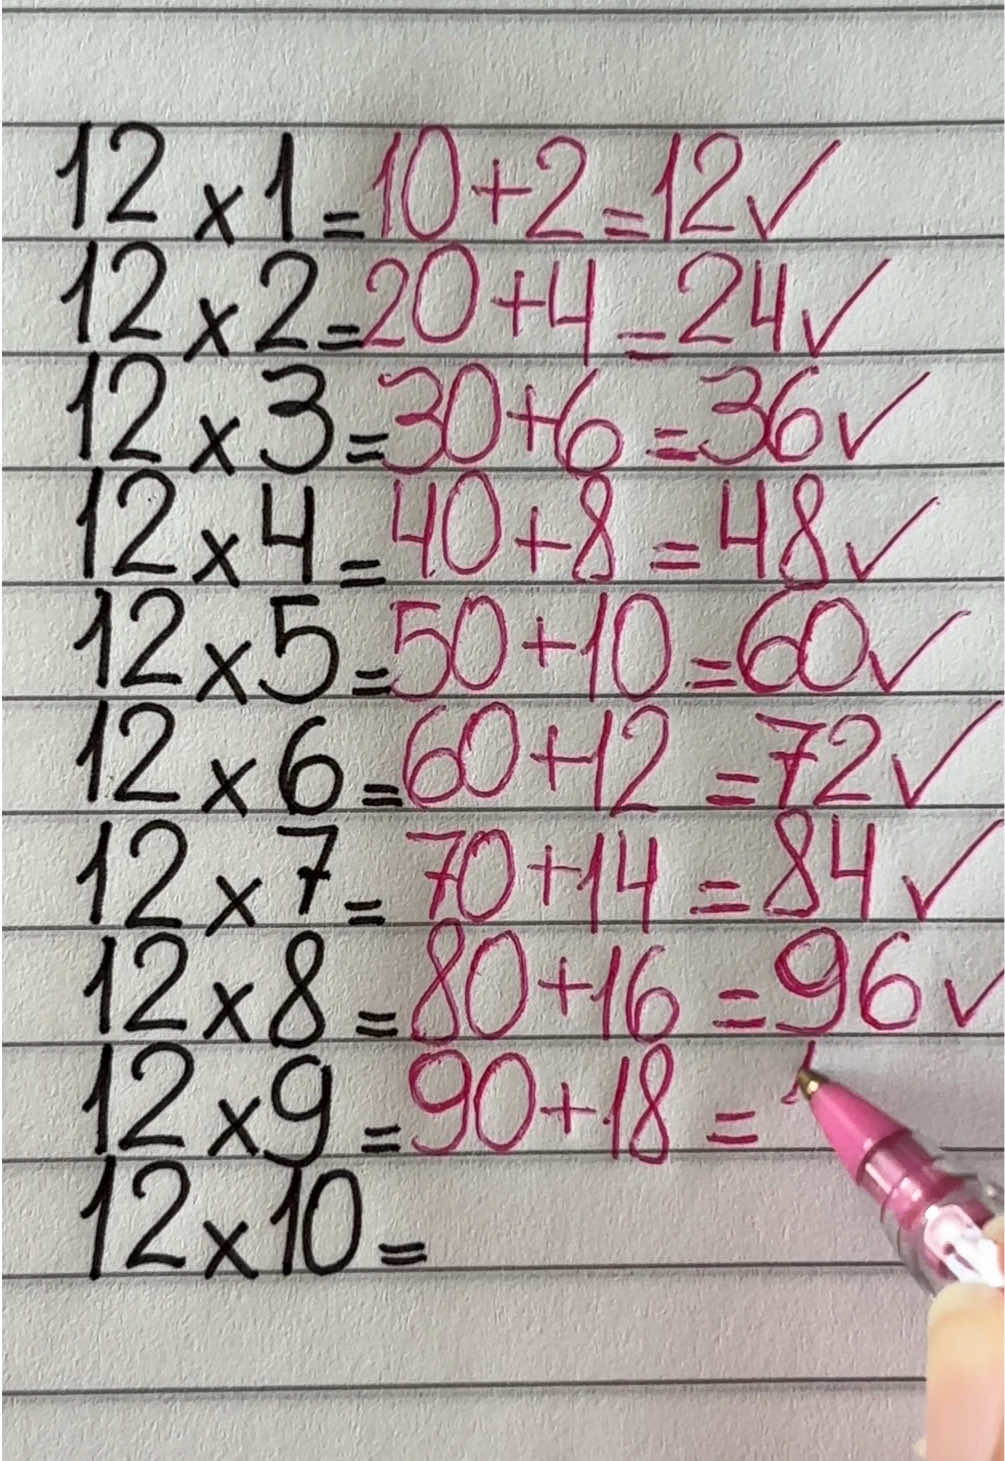 12 x 1 = 10 + 2 = 12 ✓
12 x 2 = 20 + 4 = 24 ✓
12 x 3 = 30 + 6 = 36 ✓
12 x 4 = 40 + 8 = 48 ✓
12 x 5 = 50 + 10 = 60 ✓
12 x 6 = 60 + 12 = 72 ✓
12 x 7 = 70 + 14 = 84 ✓
12 x 8 = 80 + 16 = 96 ✓
12 x 9 = 90 + 18 =
12 x 10 =